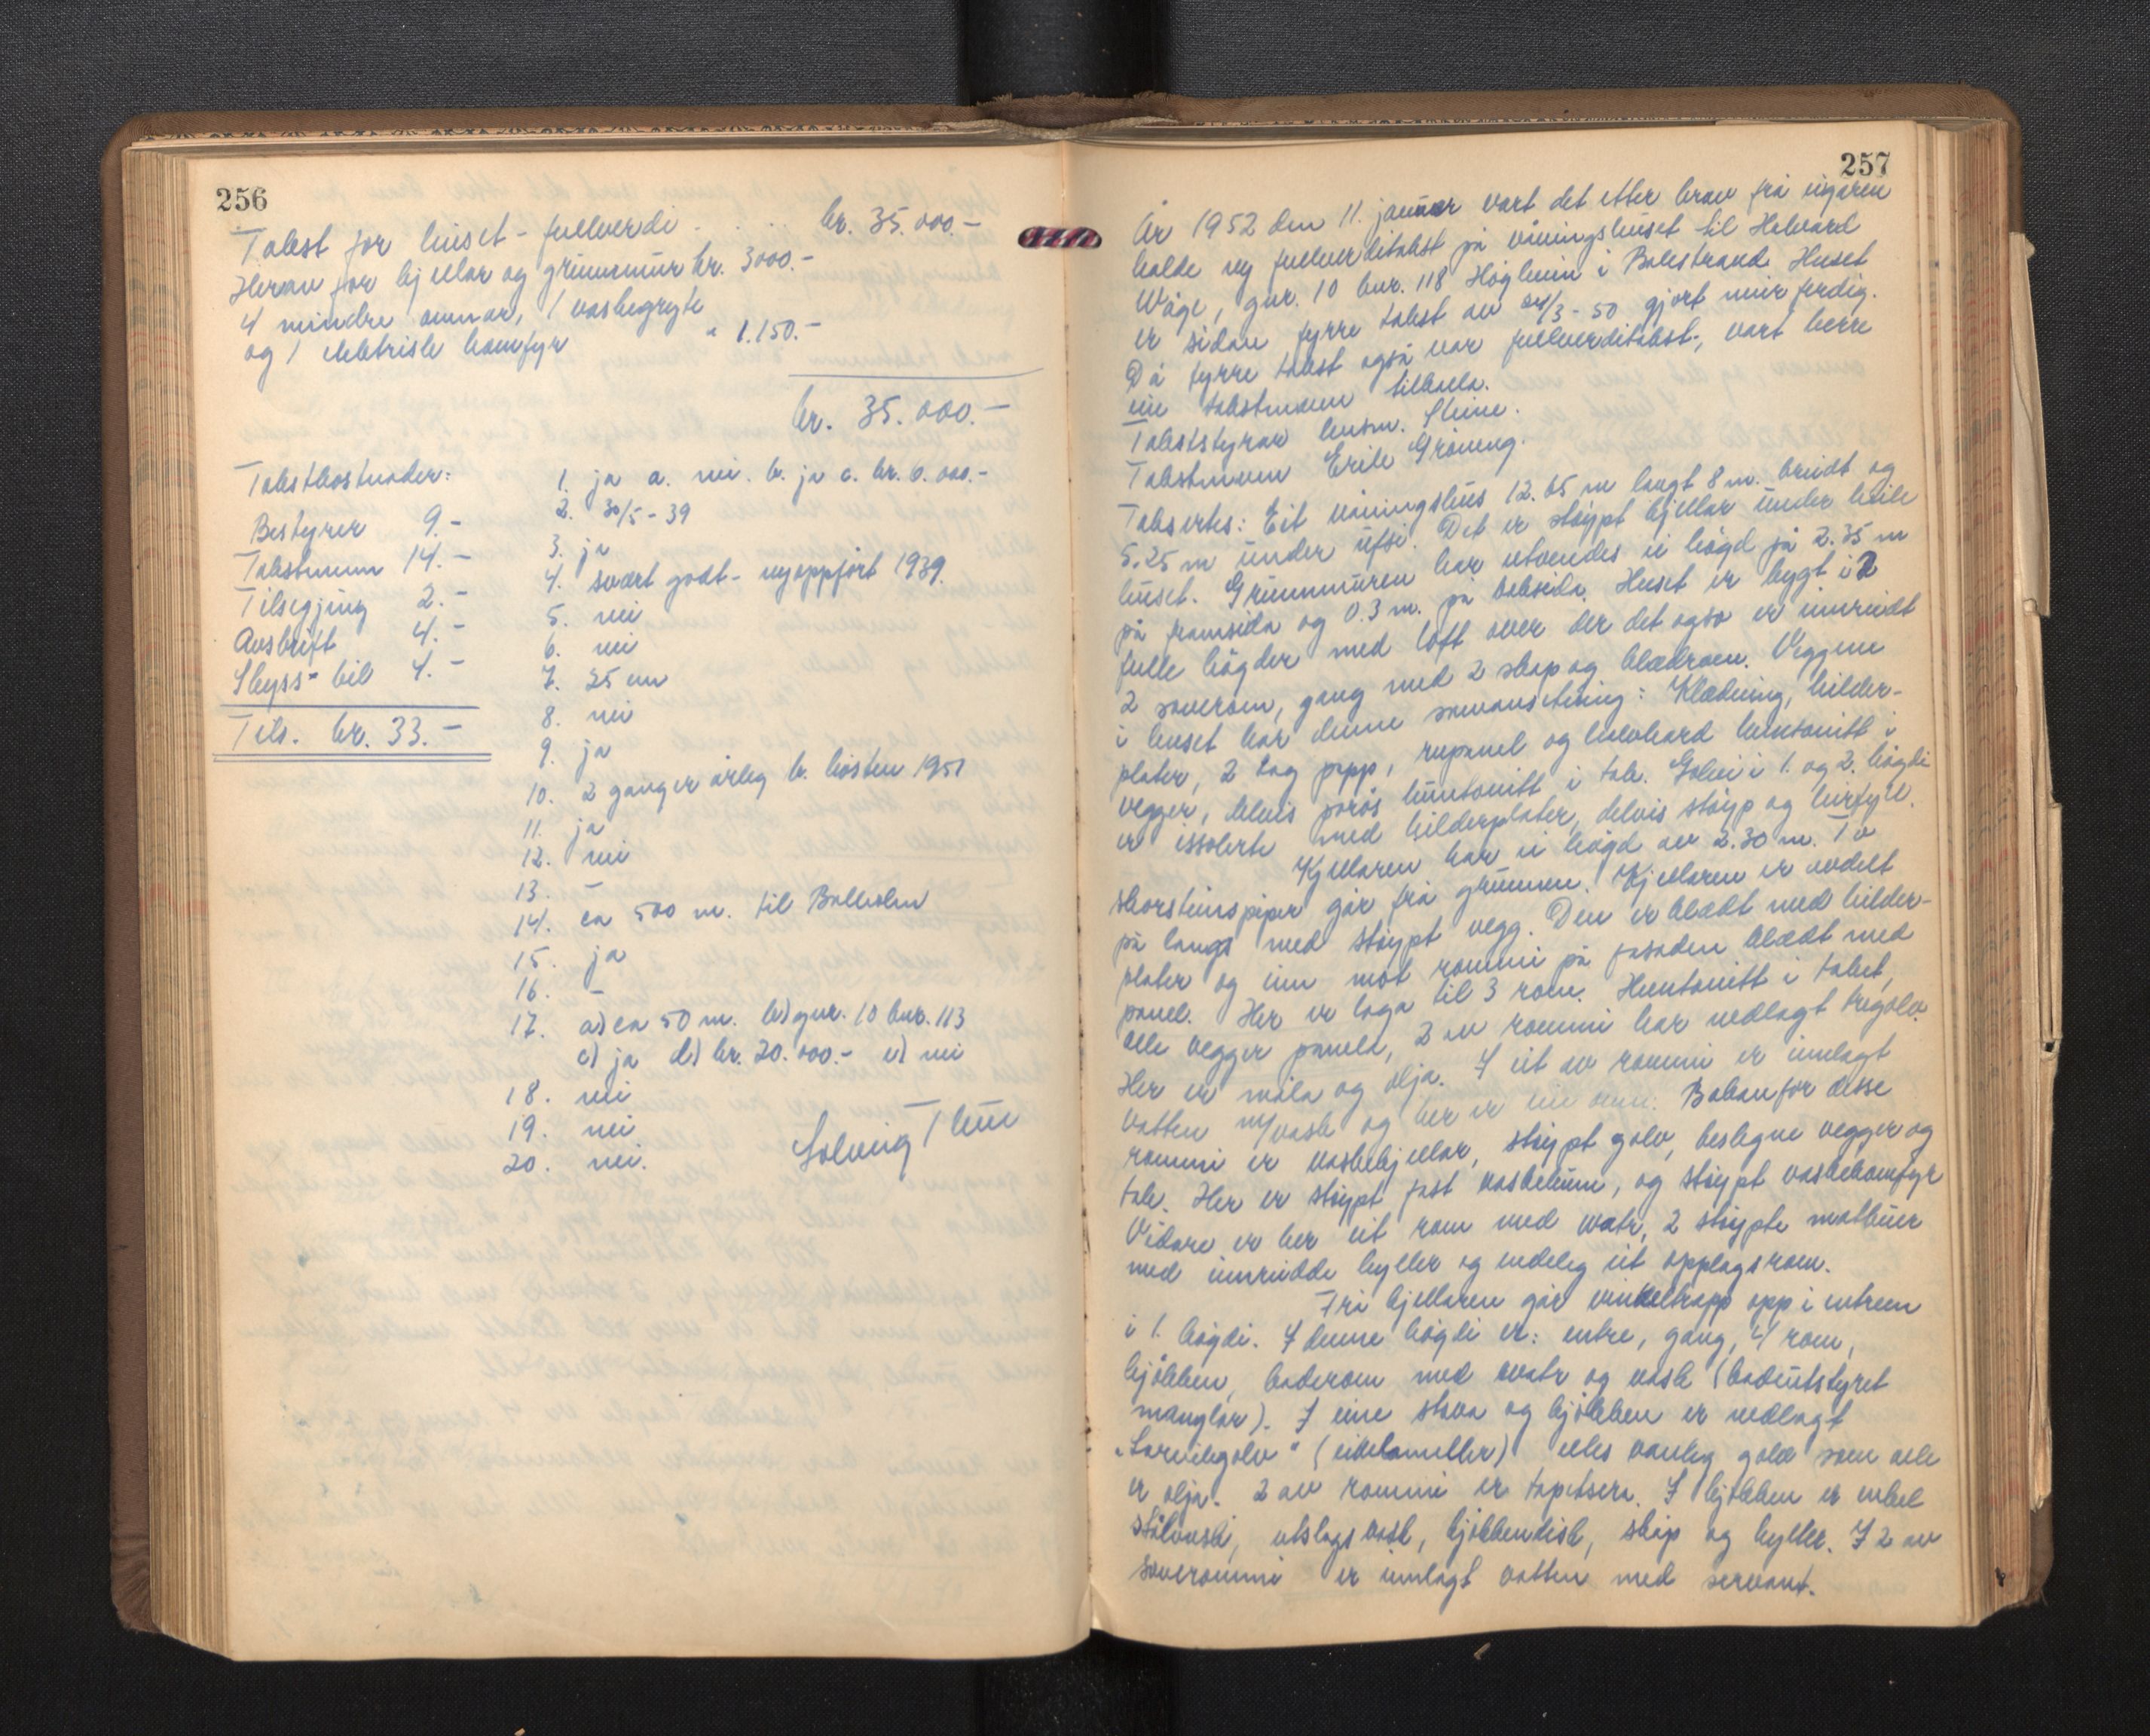 256
Takst for huset - fullverdi . . . . kr. 35.000.-
Herav for kjellar og grunnmur kr. 3000.-
4 mindre omnar, 1 vaskegryte
og 1 elektrisk komfyr " 1.150.-
kr. 35.000.-
Takstkostnader:
Bestyrer 9.-
Takstmenn 14.-
Tilsegjing 2.-
Avskrift 4.-
Skyss - bil 4.-
Tils. kr. 33.-
1. ja a. nei. b. ja c. kr. 6.000.-
2. 30/5 - 39
3. ja
4. svært godt - nyoppført 1939.
5. nei
6. nei
7. 25 cm
8. nei
9. ja
10. 2 ganger årleg b. hösten 1951
11. ja
12. nei
13. -
14. ca 500 m. til Balholm
15. ja
16. -
17. a) ca 50 m. b) gnr. 10 bnr. 113
c) ja d) kr. 20.000.- e) nei
18. nei
19. nei
20. nei.
Solveig Thue
257
År 1952 den 11. januar vart det etter krav frå eigaren
halde ny fullverditakst på våningshuset til Halvard
Våge, gnr. 10 bnr. 118 Högheim i Balestrand. Huset
er sidan fyrre takst av 24/3 - 50 gjort meir ferdig.
Då fyrre takst også var fullverditakst, vart berre
ein takstmann tilkalla.
Takststyrar lensm. Steine.
Takstmann Erik Gröneng.
Taksertes: Eit våningshus 12.65 m langt 8 m. breidt og
5.25 m under ufsi. Det er stöypt kjellar under heile
huset. Grunnmuren har utvendes ei högd på 2.35 m
på framsida og 0.3 m. på baksida. Huset er bygt i 2
fulle högder med loft over der det ogso er innreidt
2 soverom, gang med 2 skap og klædrom. Veggene
i huset har denne samansetning: Klædning, hilder-
plater, 2 lag papp, rupanel og halvhard huntonitt i
vegger, delvis porös huntonitt i tak. Golvi i 1. og 2. högdi
er issolerte med hilderplater, delvis stöyp og leirfyll.
Kjellaren har ei högd av 2.30 m. To
skorsteinspiper går frå grunnen. Kjellaren er avdelt
på langs med stöypt vegg. Den er klædt med hilder-
plater og inn mot rommi på fasaden klædt med
panel. Her er laga til 3 rom. Huntonitt i taket,
alle vegger panela, 2 av rommi har nedlagt tregolv.
Her er måla og olja. I eit av rommi er innlagt
vatten m/vask og her er ein omn. Bakanfor disse
rommi er vaskekjellar, stöypt golv, beslegne vegger og
tak. Her er stöypt fast vaskekum, og stöypt vaskekomfyr
Vidare er her eit rom med watr, 2 stöypte matbuer
med innreidde hyller og endeleg eit opplagsrom.
Frå kjellaren går vinkeltrapp opp i entreen
i 1. högdi. I denne högdi er: entre, gang, 4 rom,
kjökken, baderom med watr og vask (badeutstyret
manglar). I eine stova og kjökken er nedlagt
"Larvikgolv" (eikelameller) elles vanleg golv som alle
er olja. 2 av rommi er tapetsera. I kjökken er enkel
stålvask, utslagsvask, kjökkendisk, skåp og hyller. I 2 av
soverommi er innlagt vatten med servant.